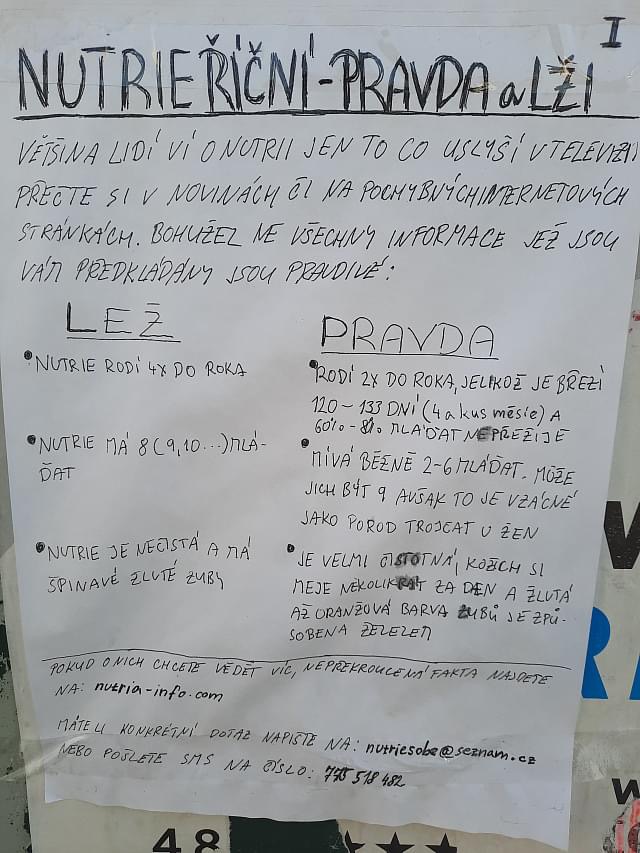 I
NUTRIE ŘÍČNÍ - PRAVDA a LŽI
VĚTŠINA LIDÍ VÍ O NUTRII JEN TO CO USLYŠÍ V TELEVIZI
PŘEČTE SI V NOVINÁCH ČI NA POCHYBNÝCH INTERNETOVÝCH
STRÁNKÁCH. BOHUŽEL NE VŠECHNY INFORMACE JEŽ JSOU
VÁM PŘEDKLÁDÁNY JSOU PRAVDIVÉ:
LEŽ
• NUTRIE RODÍ 4X DO ROKA
• NUTRIE MÁ 8 (9,10...) MLÁ-
ĎAT
• NUTRIE JE NEČISTÁ A MÁ
ŠPINAVÉ ŽLUTÉ ZUBY
PRAVDA
• RODÍ 2X DO ROKA, JELIKOŽ JE BŘEZÍ
120-133 DNÍ (4 a kus měsíce) A
MLÁĎAT NEPŘEŽIJE
• MÍVÁ BĚŽNĚ 2-6 MLÁĎAT. MŮŽE
JICH BÝT 9 AVŠAK TO JE VZÁCNÉ
JAKO POROD TROJČAT U ŽEN
• JE VELMI ČISTOTNÁ, KOŽICH SI
MEJE NĚKOLIKRÁT ZA DEN A ŽLUTÁ
AŽ ORANŽOVÁ BARVA ZUBŮ JE ZPŮ-
SOBENA ŽELEZEM
POKUD O NICH CHCETE VĚDĚT VÍC, NEPŘEKROUCENÁ FAKTA NAJDETE
NA: nutria-info.com
MÁTE LI KONKRÉTNÍ DOTAZ NAPIŠTE NA: nutriesobe@seznam.cz
NEBO POŠLETE SMS NA ČÍSLO: 775 518 482
48 ★★★